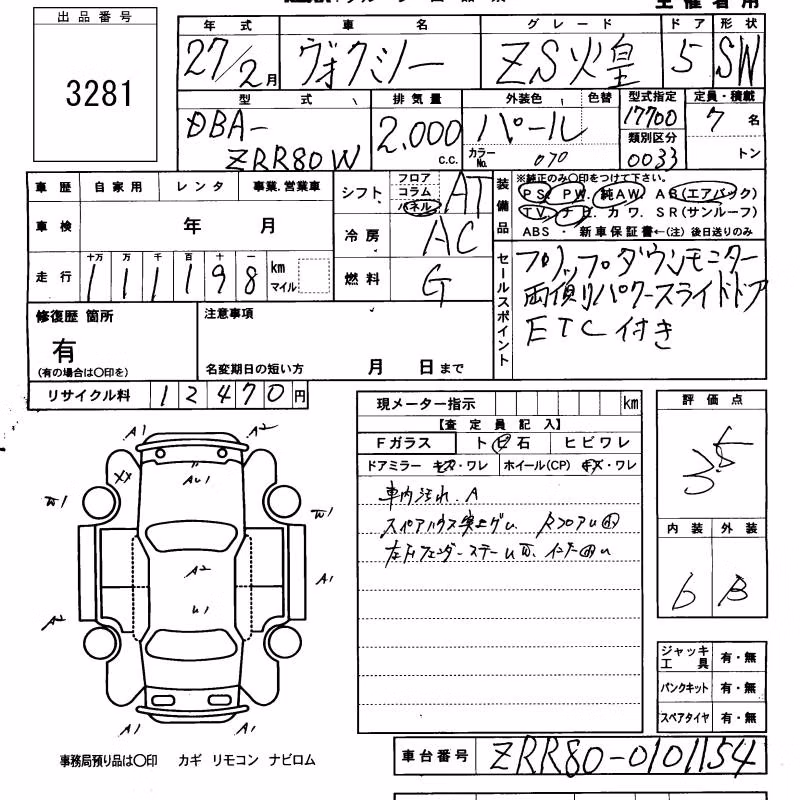 主催者用
出品番号
3281
年式 車名 グレード ドア 形状
27/2月 ヴォクシー ZS火皇 5 SW
型式 排気量 外装色 色替 型式指定 定員・積載
DBA- 2,000 パール 17700 7名
ZRR80W c.c. カラーNo. 070 類別区分 0033 トン
車歴 自家用 レンタ 事業、営業車
シフト フロア コラム パネル AT
車検 年 月
冷房 AC
走行 十万 万 千 百 十 一
111198 km マイル
燃料 G
装備品
※純正のみ〇印をつけて下さい。
PS. PW. 純AW. AB(エアバック)
TV. ナビ. カワ. SR(サンルーフ)
ABS・新車保証書←(注) 後日送りのみ
セールスポイント
フリップダウンモニター
両側パワースライドドア
ETC付き
修復歴 箇所
有
(有の場合は〇印を)
注意事項
名変期日の短い方 月 日まで
リサイクル料 12470円
現メーター指示 km
【査定員記入】
Fガラス ト ビ 石 ヒビワレ
ドアミラー キズ・ワレ ホイール(CP) キズ・ワレ
車内汚れ A
評価点
3.5
内装 外装
6 B
A1 A2
XX AU1
A2
U1
A1
A2
A1 A1
ジャッキ工具 有・無
パンクキット 有・無
スペアタイヤ 有・無
事務局預り品は〇印 カギ リモコン ナビロム
車台番号 ZRR80-0101154